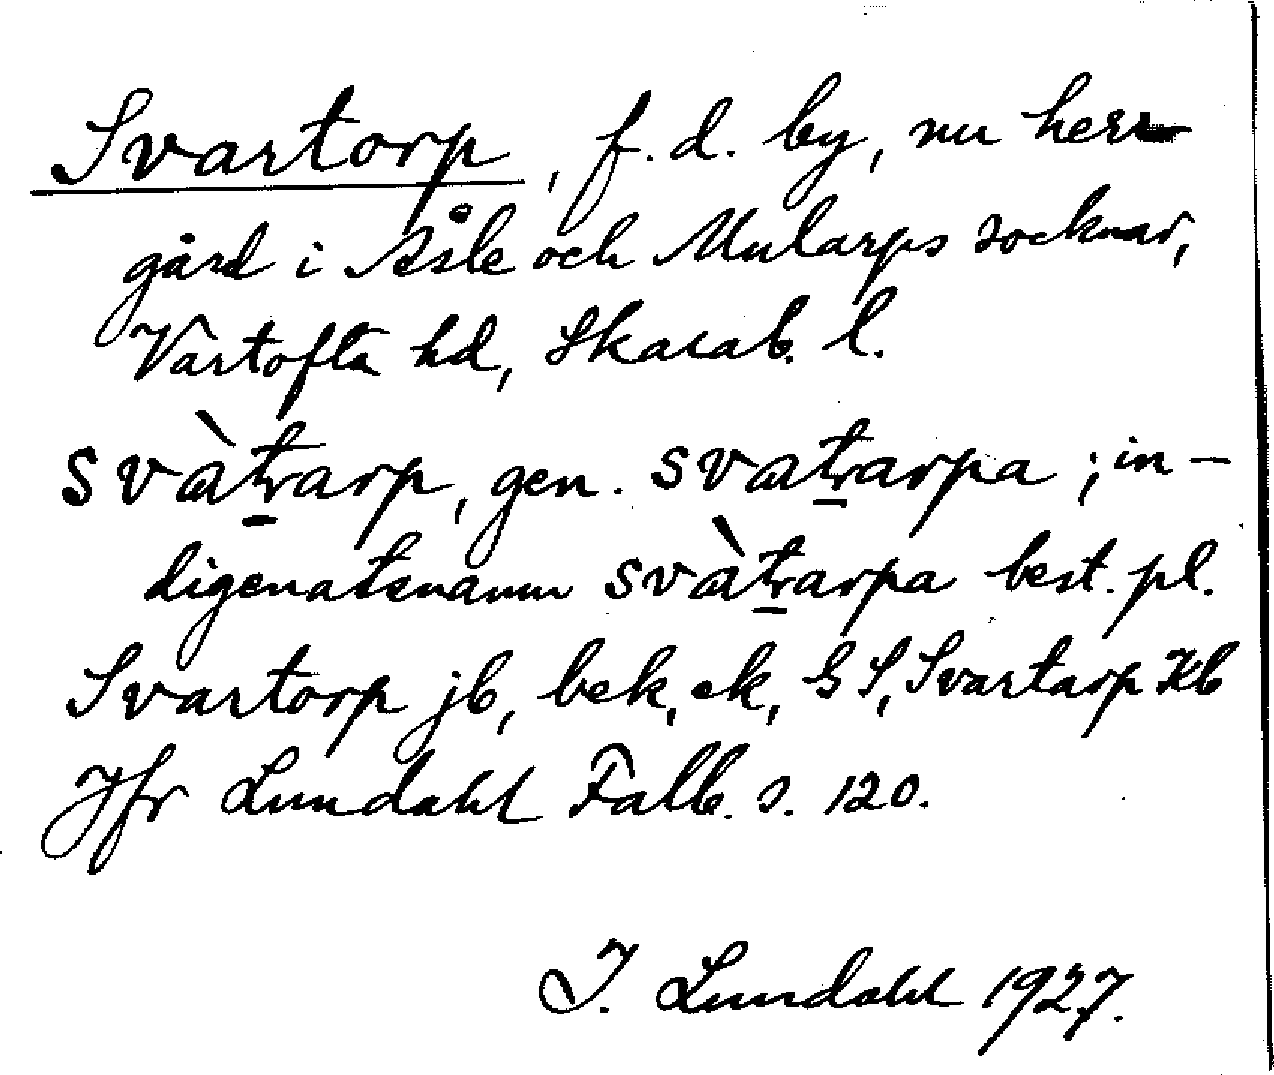 Svartorp, f. d. by, nu herr-
gård i Åsle och Mularps socknar,
Vartofta hd, Skarab. l.
svàtrarp, gen. svatrarpa; in-
digenatsnamn svàtrarpa best. pl.
Svartorp jb, bek, ek, GS, Svartarp Kb
Jfr Lundahl Falb. s. 120.
I. Lundahl 1927.